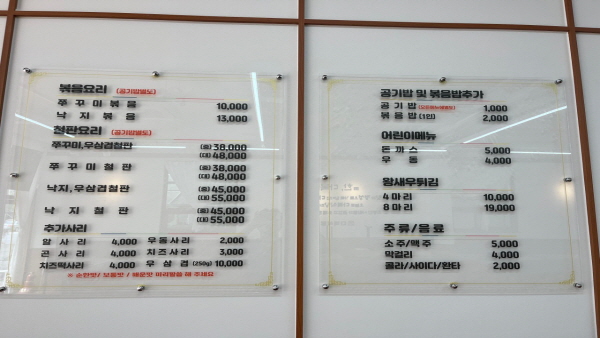 볶음요리 (공기밥별도)
쭈꾸미볶음 10,000
낙지볶음 13,000
철판요리 (공기밥별도)
쭈꾸미,우삼겹철판 (중) 38,000
(대) 48,000
쭈꾸미철판 (중) 38,000
(대) 48,000
낙지,우삼겹철판 (중) 45,000
(대) 55,000
낙지철판 (중) 45,000
(대) 55,000
추가사리
알사리 4,000 우동사리 2,000
곤사리 4,000 치즈사리 3,000
치즈떡사리 4,000 우삼겹 (250g) 10,000
※ 순한맛/ 보통맛 / 매운맛 미리말씀 해 주세요
공기밥 및 볶음밥추가
공기밥 1,000
볶음밥 (1인) 2,000
어린이메뉴
돈까스 5,000
우동 4,000
왕새우튀김
4마리 10,000
8마리 19,000
주류/음료
소주/맥주 5,000
막걸리 4,000
콜라/사이다/환타 2,000